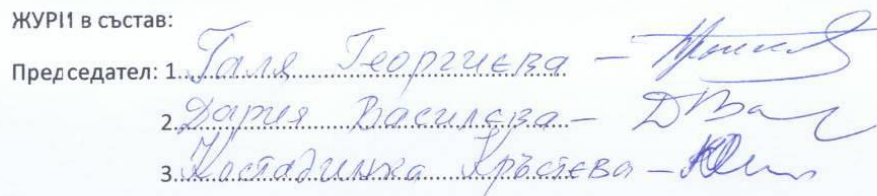 ЖУРИ в състав:
Председател: 1. Галя Георгиева –
2. Дария Василева –
3. Костадинка Кръстева –